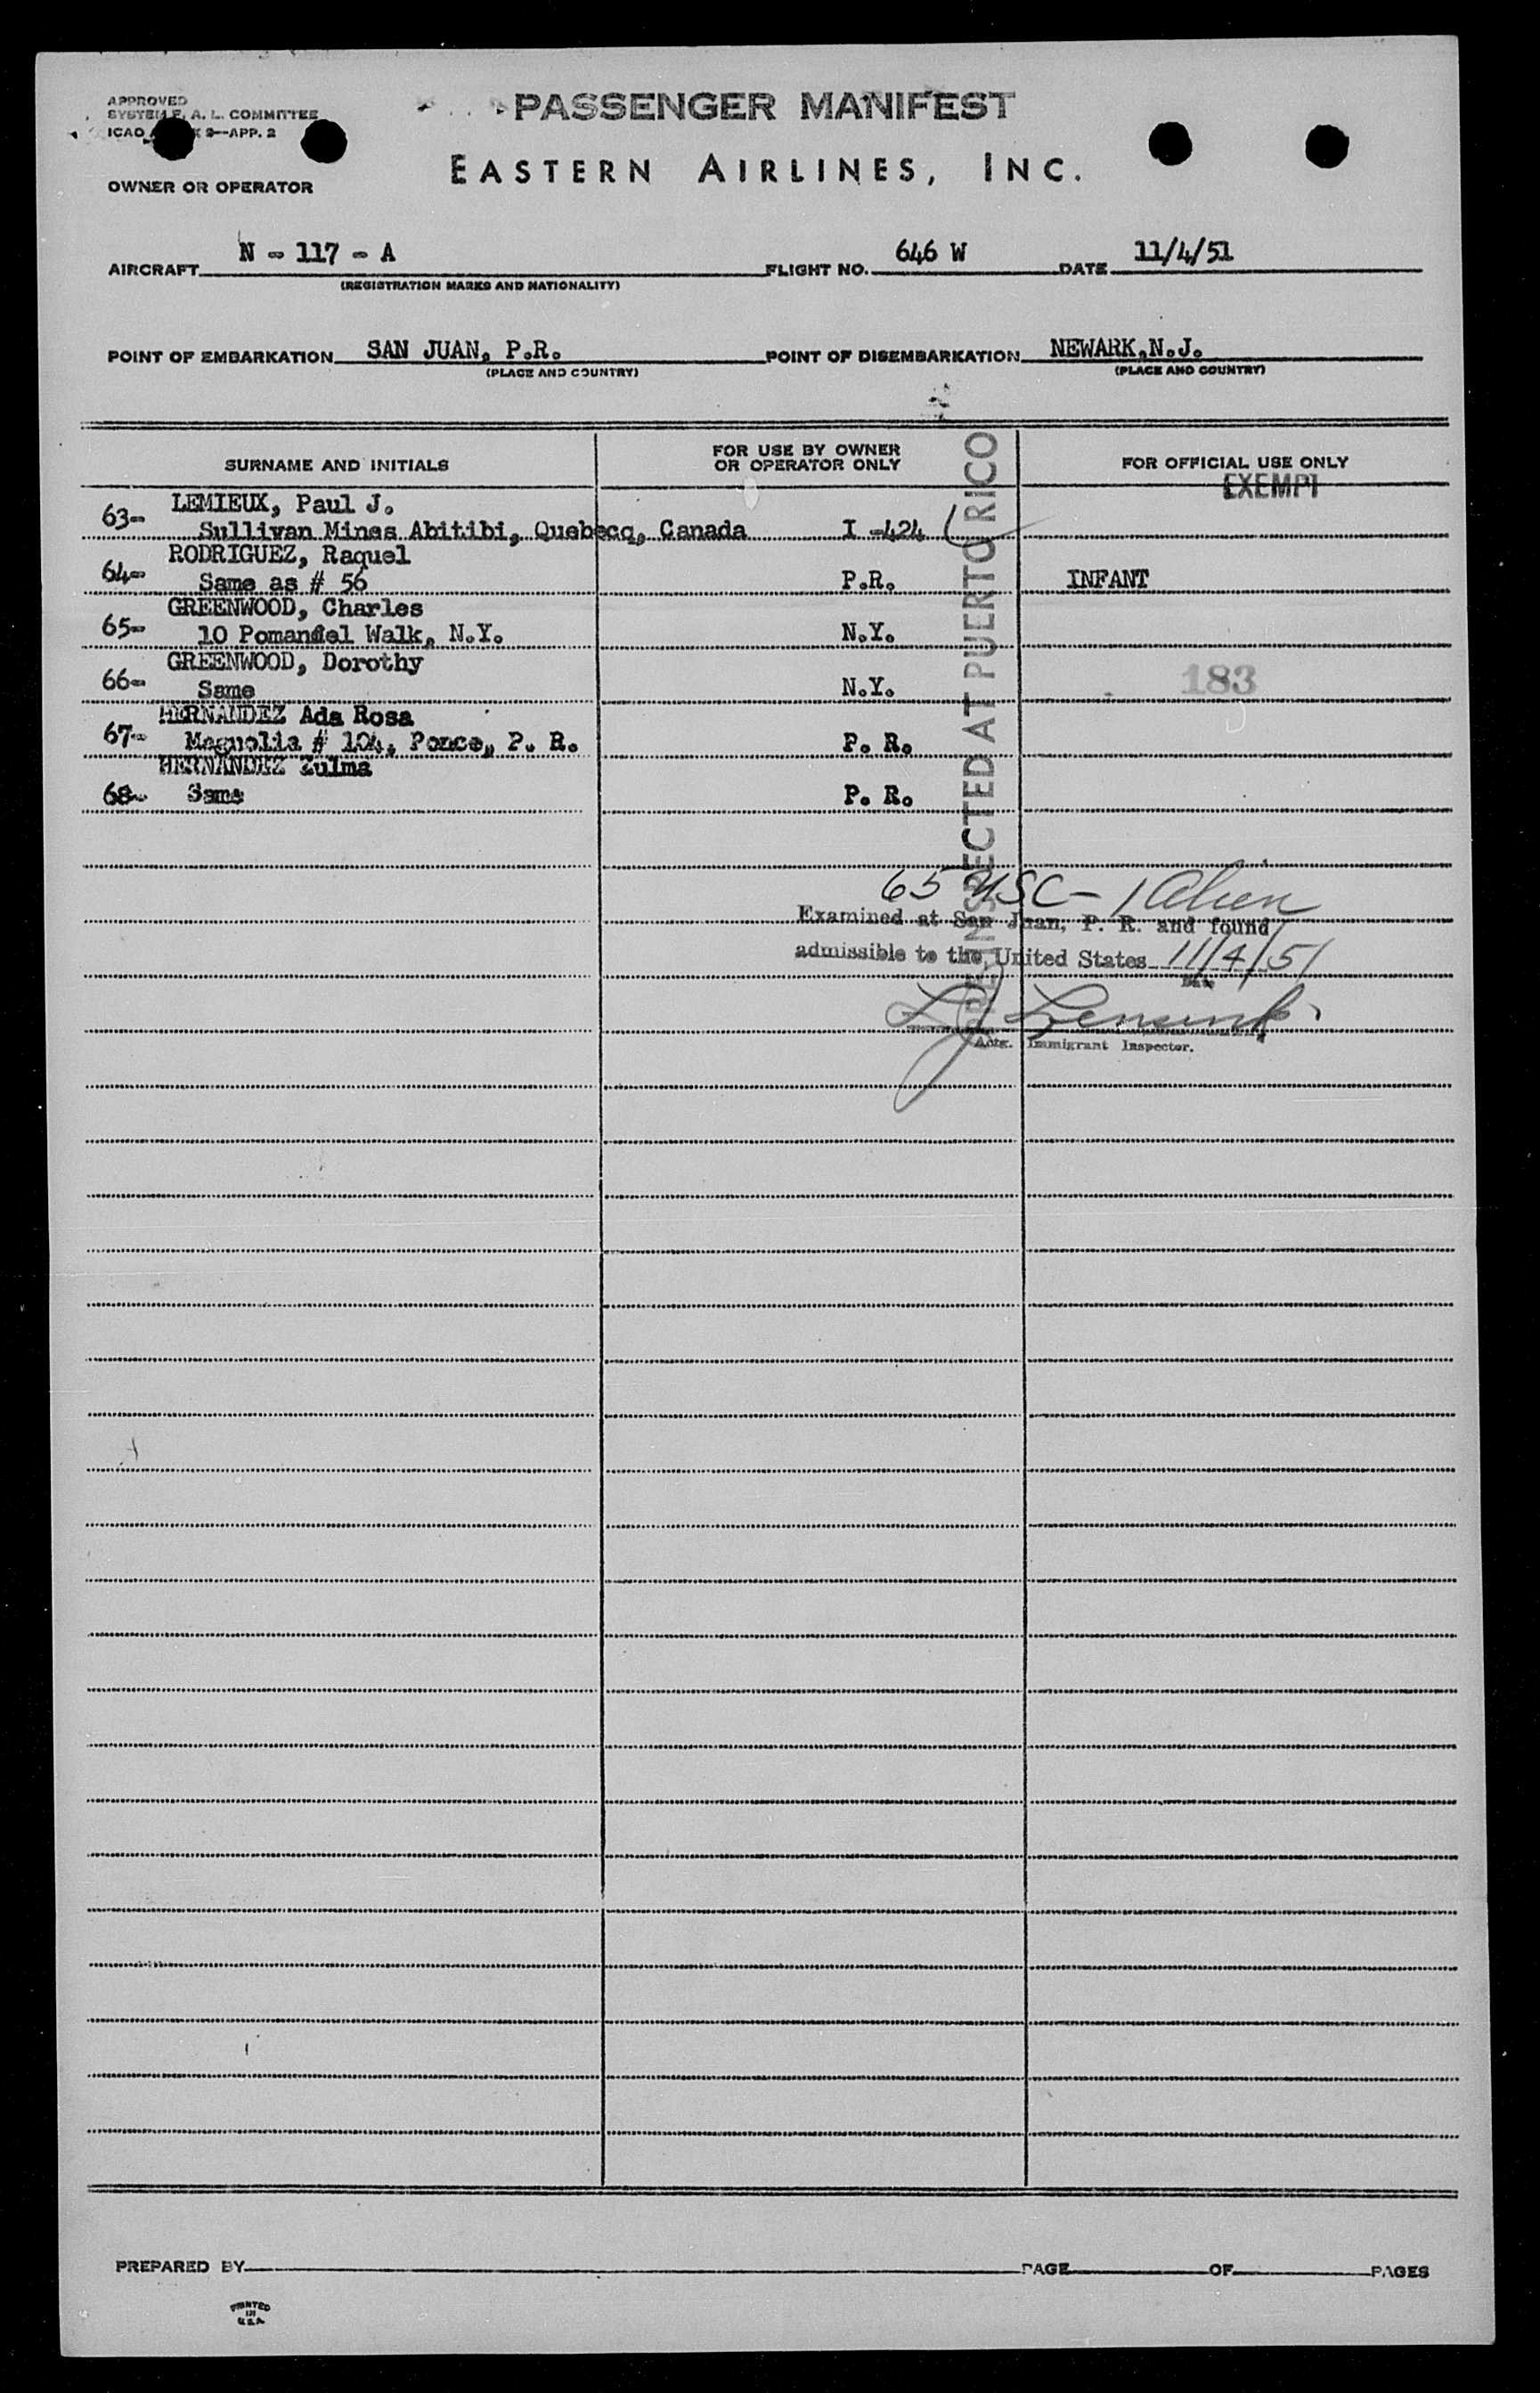 APPROVED
SYSTEM F. A. L. COMMITTEE
ICAO 9—APP. 2
PASSENGER MANIFEST
EASTERN AIRLINES, INC.
OWNER OR OPERATOR
AIRCRAFT N - 117 - A FLIGHT NO. 646 W DATE 11/4/51
(REGISTRATION MARKS AND NATIONALITY)
POINT OF EMBARKATION SAN JUAN, P.R. POINT OF DISEMBARKATION NEWARK,N.J.
(PLACE AND COUNTRY) (PLACE AND COUNTRY)
SURNAME AND INITIALS FOR USE BY OWNER OR OPERATOR ONLY FOR OFFICIAL USE ONLY
EXEMPT
LEMIEUX, Paul J.
63- Sullivan Mines Abitibi, Quebecq, Canada I -424
RODRIGUEZ, Raquel
64- Same as # 56 P.R. INFANT
GREENWOOD, Charles
65- 10 Walk, N.Y. N.Y.
GREENWOOD, Dorothy
66- Same N.Y. 183
HERNANDEZ Ada Rosa
67- Magnolia # 104, Ponce, P. R. P. R.
HERNANDEZ Zulma
68- Same P. R.
PRE-INSPECTED AT PUERTO RICO
65 USC - 1 Alien
Examined at San Juan, P. R. and found
admissible to the United States 11/4/51
Date
Actg. Immigrant Inspector.
PREPARED BY PAGE OF PAGES
PRINTED
IN
U.S.A.